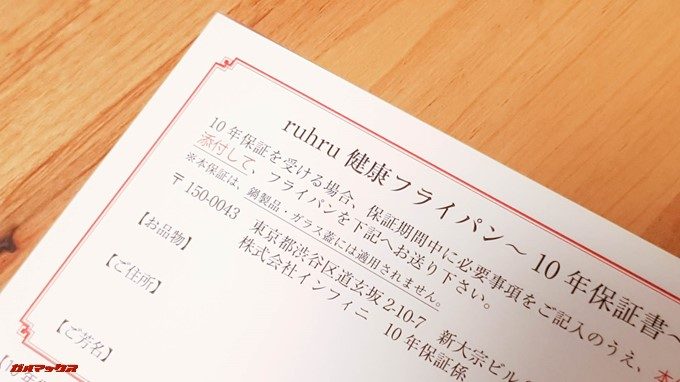 ruhru 健康フライパン～ 10年保証書～
10年保証を受ける場合、保証期間中に必要事項をご記入のうえ、本
添付して、フライパンを下記へお送り下さい。
※本保証は、鍋製品・ガラス蓋には適用されません。
〒150-0043 東京都渋谷区道玄坂2-10-7 新大宗ビル
株式会社インフィニ 10年保証係
【お品物】
【ご住所】
【ご芳名】
【10年保
ガルマックス